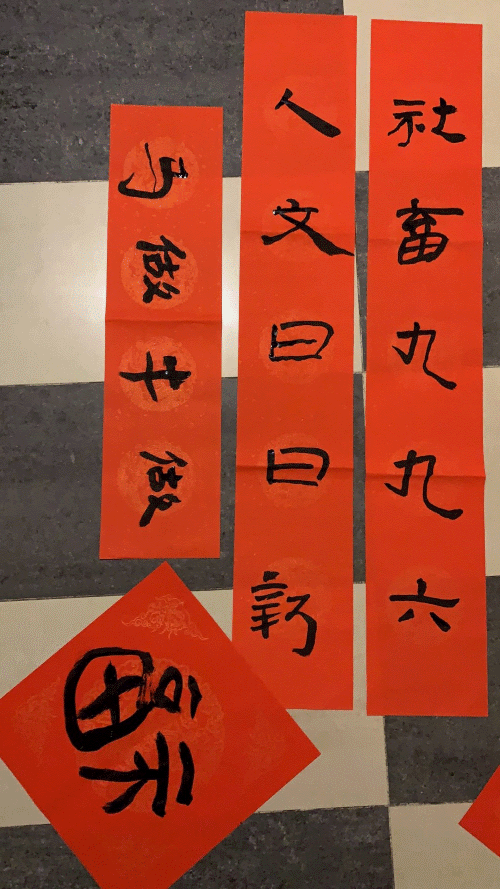 社畜九九六
人文日日新
做牛做马
福